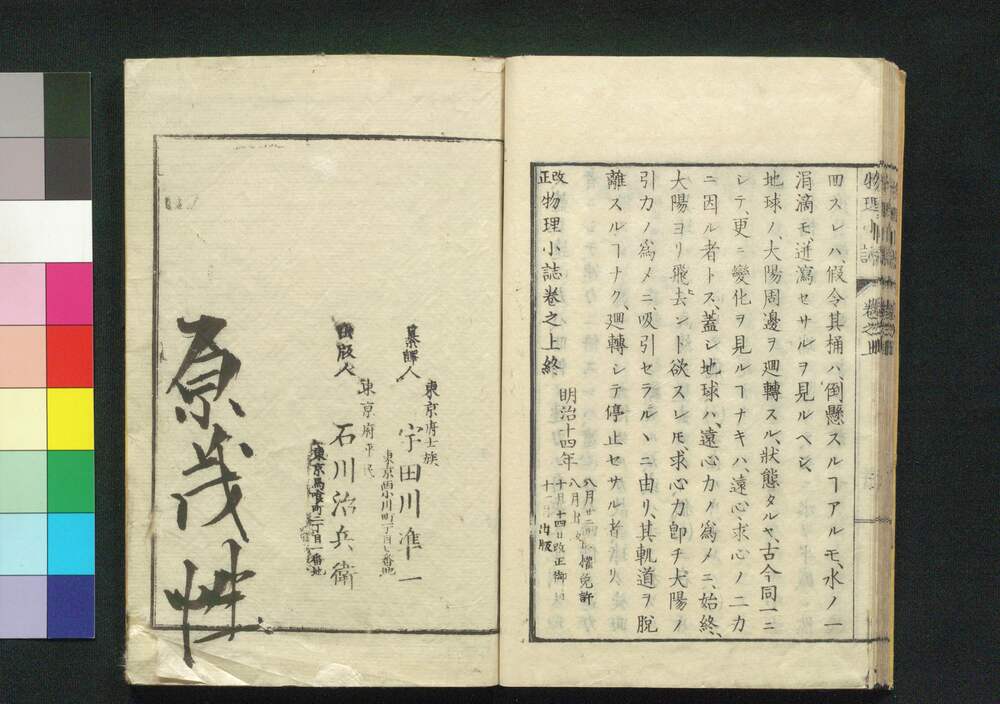 物理小誌 卷之上
四スレハ、假令其桶ハ、倒懸スルヿアルモ、水ノ一
涓滴モ、迸瀉セサルヲ見ルヘシ、
地球ノ、大陽周邊ヲ廻轉スル、狀態タルヤ、古今同一ニ
シテ、更ニ變化ヲ見ルヿナキハ、遠心求心ノ二力
ニ因ル者トス、蓋シ地球ハ、遠心力ノ爲メニ、始終、
大陽ヨリ飛去ント欲スレ𪜈、求心力卽チ大陽ノ
引力ノ爲メニ、吸引セラルヽニ由リ、其軌道ヲ脫
離スルヿナク、廻轉シテ停止セサル者ナリ
改正 物理小誌卷之上終
明治十四年
八月廿二日版權免許
八月出
十月十四日改正御
十一月出版
纂譯人
東京府士族
宇田川準一
出版人
東京府平民
石川治兵衛
東京馬喰町二丁目一番地
原茂性